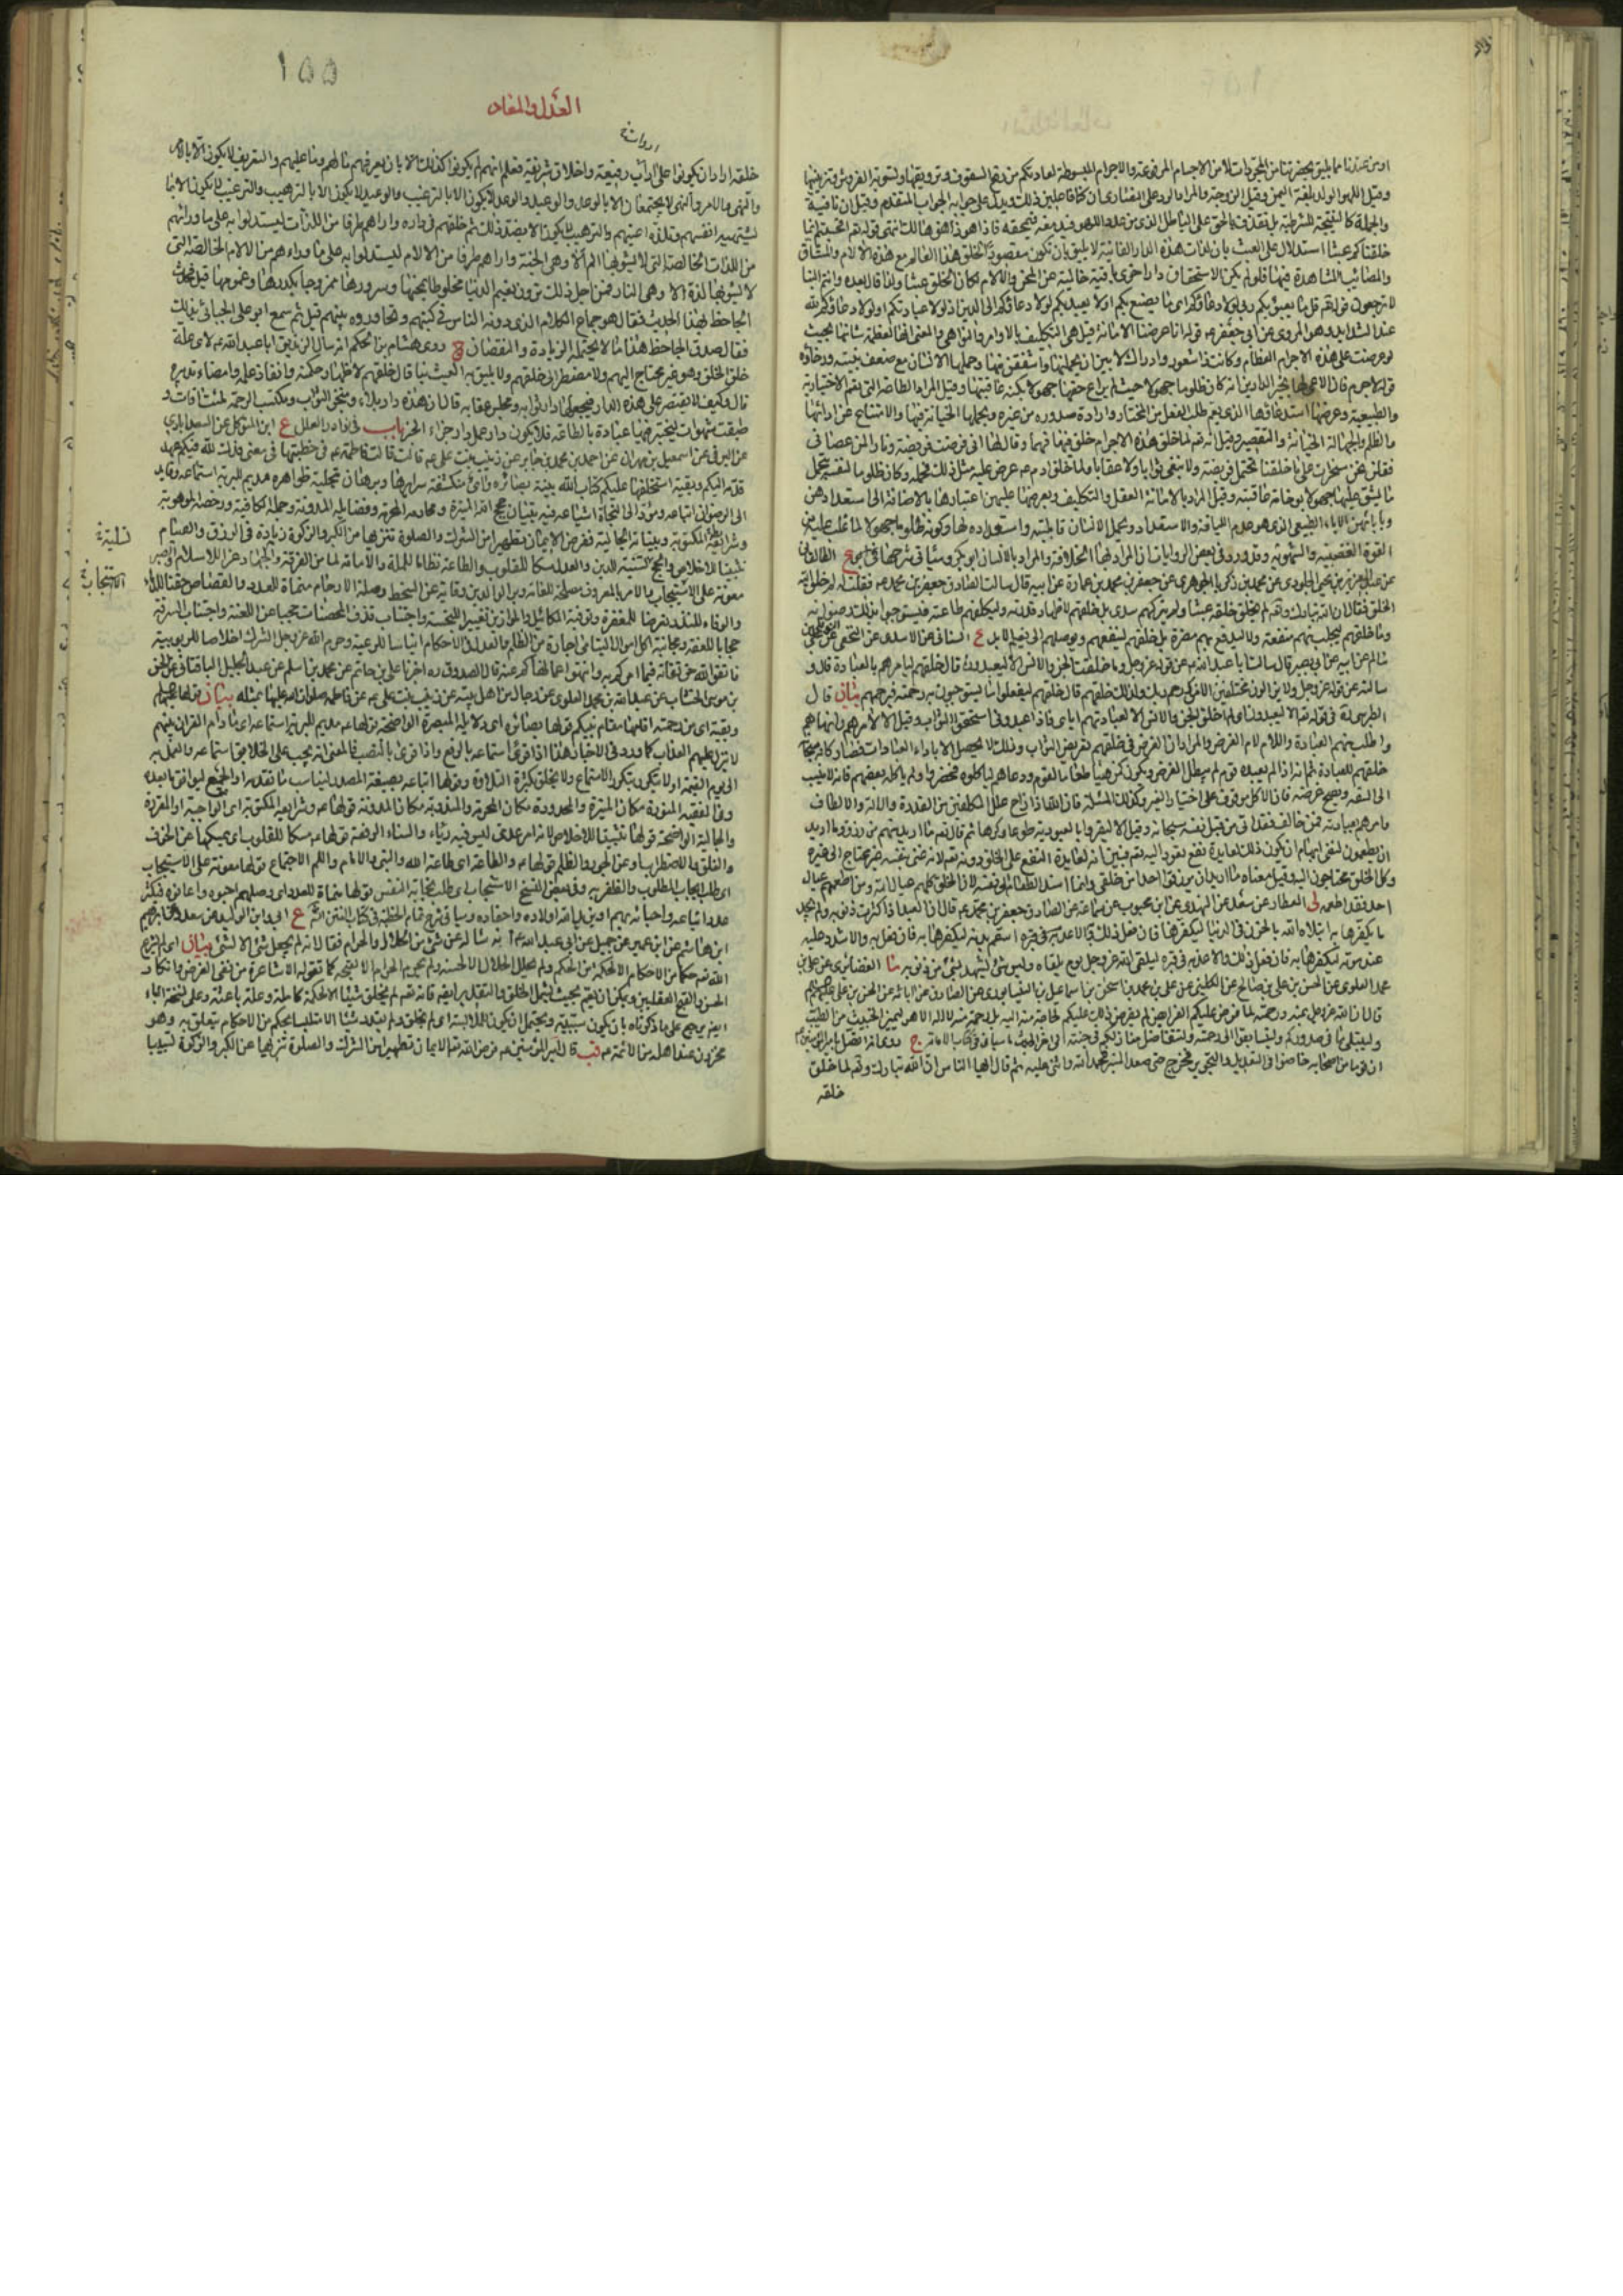 او من عندنا مما يليق بحضرتنا من المجردات لا من الاجسام المرفوعة والاجرام المبسوطة لعادتكم من رفع السقوف وتزويقها وتسوية الفروش وتزيينها
وقيل اللهو الولد بلغة اليمن وقيل الزوجة والمراد الرد على النصارى ان كنا فاعلين ذلك ويدل على جوابه الجواب المتقدم وقيل ان نافية
والجملة كالنتيجة للشرطية بل نقذف بالحق على الباطل الذي من عداده اللهو فيدمغه فيمحقه فاذا هو زاهق هالك انتهى قوله تعالى افحسبتم انما
خلقناكم عبثا استدلال على البعث بان لذات هذه الدار الفانية لا يليق بان تكون مقصودة لخلق هذا العالم مع هذه الآلام والمشاق
والمصائب المشاهدة فيها فلو لم يكن لاستحقاق دار اخرى باقية خالية عن المحن والآلام لكان الخلق عبثا ولذا قال بعده وانكم الينا
لا ترجعون قوله تعالى قل ما يعبؤ بكم ربي لولا دعاؤكم اي ما يصنع بكم او لا يعتد بكم لولا دعاؤكم الى الدين او لولا عبادتكم او لولا دعاؤكم لله
عند الشدايد وهو المروي عن ابي جعفر ع قوله انا عرضنا الامانة قيل هي التكليف بالاوامر والنواهي والمعنى انها لعظمة شانها بحيث
لو عرضت على هذه الاجرام العظام وكانت ذا شعور وادراك لابين ان يحملنها واشفقن منها وحملها الانسان مع ضعف بنيته ورخاوة
قوته لا جرم فاز الراعي لها بخير الدارين انه كان ظلوما جهولا حيث لم يراع حقها جهولا بكنه عاقبتها وقيل المراد الطاعة التي تعم الاختيارية
والطبيعية وعرضها استدعاؤها الذي يعم طلب الفعل من المختار وارادة صدوره من غيره وبحملها الخيانة فيها والامتناع عن ادائها
والظلم والجهالة الخيانة والتقصير وقيل انه تعالى لما خلق هذه الاجرام خلق فيها فهما وقال لها اني فرضت فريضة ونارا لمن عصاني
فقلن نحن مسخرات على ما خلقتنا لا نحتمل فريضة ولا نبغي ثوابا ولا عقابا ولما خلق ادم ع عرض عليه مثل ذلك فحمله وكان ظلوما لنفسه بتحمل
ما يشق عليها جهولا بوخامة عاقبته وقيل المراد بالامانة العقل والتكليف وبعرضها عليهن اعتبارها بالاضافة الى استعدادهن
وبابائهن الاباء الطبيعي الذي هو عدم اللياقة والاستعداد وبحمل الانسان قابليته واستعداده لها وكونه ظلوما جهولا لما غلب عليه من
القوة الغضبية والشهوية وقد ورد في بعض الروايات ان المراد بها الخلافة والمراد بالانسان ابو بكر وسياتي شرحها في ع الطالقاني
عن عبد العزيز بن يحيى الجلودي عن محمد بن زكريا الجوهري عن جعفر بن محمد بن عمارة عن ابيه قال سالت الصادق جعفر بن محمد ع فقلت له لم خلق الله
الخلق فقال ان الله تبارك وتعالى لم يخلق خلقه عبثا ولم يتركهم سدى بل خلقهم لاظهار قدرته وليكلفهم طاعته فيستوجبوا بذلك رضوانه
وما خلقهم ليجلب منهم منفعة ولا ليدفع بهم مضرة بل خلقهم لينفعهم ويوصلهم الى نعيم الابد ع السناني عن الاسدي عن النخعي عن
سالم عن ابيه عن ابي بصير قال سالت ابا عبد الله ع عن قول الله عز وجل وما خلقت الجن والانس الا ليعبدون قال خلقهم ليامرهم بالعبادة قال و
سالته عن قوله عز وجل ولا يزالون مختلفين الا من رحم ربك ولذلك خلقهم قال خلقهم ليفعلوا ما يستوجبون به رحمته فيرحمهم بيان قال
الطبرسي في قوله تعالى الا ليعبدون اي لم اخلق الجن والانس الا لعبادتهم اياي فاذا عبدوني استحقوا الثواب وقيل الا لآمرهم وانهاهم
واطلب منهم العبادة واللام لام الغرض والمراد ان الغرض في خلقهم تعريض الثواب وذلك لا يحصل الا باداء العبادات فصار كانه سبحانه
خلقهم للعبادة ثم انه اذا لم يعبده قوم لم يبطل الغرض ويكون كمن هيأ طعاما لقوم ودعاهم لياكلوه فحضروا ولم ياكله بعضهم فانه لا ينسب
الى السفه ويصح غرضه فان الاكل موقوف على اختيار الغير وكذلك المسئلة فان الله اذا ازاح علل المكلفين من القدرة والآلة والالطاف
وامرهم بعبادته فمن خالف فقد اتي من قبل نفسه سبحانه وقيل الا ليقروا بالعبودية طوعا وكرها ثم قال تعالى ما اريد منهم من رزق وما اريد
ان يطعمون لنفي ايهام ان يكون ذلك لعايدة نفع تعود اليه تعالى فبين انه لعايدة النفع على الخلق دونه تعالى لانه غني بنفسه غير محتاج الى غيره
وكل الخلق محتاجون اليه وقيل معناه ما اريد ان يرزقوا احدا من خلقي وانما اسند الطعام الى نفسه لان الخلق كلهم عيال الله ومن اطعم عيال
احد فقد اطعمه لى العطار عن سعد عن النهدي عن ابن محبوب عن سماعة عن الصادق جعفر بن محمد ع قال ان العبد اذا كثرت ذنوبه ولم يجد
ما يكفرها به ابتلاه الله بالحزن في الدنيا ليكفرها فان فعل ذلك به والا اسقم بدنه ليكفرها به فان فعل به والا شدد عليه
عند موته ليكفرها به فان فعل ذلك والا عذبه في قبره ليلقى الله عز وجل يوم يلقاه وليس شئ يشهد بشئ من ذنوبه ما الغضائري عن علي بن
محمد العلوي عن الحسن بن علي بن صالح عن الكليني عن علي بن محمد بن اسحق بن اسماعيل بن النيسابوري عن الصادق عن ابائه عن الحسن بن علي
قال ان الله عز وجل بمنه ورحمته لما فرض عليكم الفرايض لم يفرض ذلك عليكم لحاجة منه اليه بل رحمة منه لا اله الا هو ليميز الخبيث من الطيب
وليبتلي ما في صدوركم وليتسابقوا الى رحمته ولتتفاضل منازلكم في جنته الى اخر الحديث سياتي في كتاب الامامة ج
ان قوما من اصحابه خاضوا في التعديل والتجوير فخرج حتى صعد المنبر فحمد الله واثنى عليه ثم قال ايها الناس ان الله تبارك وتعالى لما خلق
خلقه
١٥٥
العدل والمعاد
خلقه اراد ان يكونوا على آداب رفيعة واخلاق شريفة فعلم انهم لم يكونوا كذلك الا بان يعرفهم ما لهم وما عليهم والتعريف لا يكون الا بالامر
والنهي والامر والنهي لا يجتمعان الا بالوعد والوعيد والوعد لا يكون الا بالترغيب والوعيد لا يكون الا بالترهيب والترغيب لا يكون الا بما
تشتهيه انفسهم وتلذه اعينهم والترهيب لا يكون الا بضد ذلك ثم خلقهم في داره واراهم طرفا من اللذات ليستدلوا به على ما ورائهم
من اللذات الخالصة التي لا يشوبها الم الا وهي الجنة واراهم طرفا من الآلام ليستدلوا به على ما وراءهم من الالام الخالصة التي
لا يشوبها لذة الا وهي النار فمن اجل ذلك ترون نعيم الدنيا مخلوطا بمحنها وسرورها ممزوجا بكدرها وغمومها قيل فحدث
الجاحظ بهذا الحديث فقال هو جماع الكلام الذي دونه الناس في كتبهم وتحاوروه بينهم قيل ثم سمع ابو علي الجبائي بذلك
فقال صدق الجاحظ هذا ما لا يحتمله الزيادة والنقصان ج روى هشام بن الحكم انه سال الزنديق ابا عبد الله ع لاي علة
خلق الخلق وهو غير محتاج اليهم ولا مضطر الى خلقهم ولا يليق به العبث بنا قال خلقهم لاظهار حكمته وانفاذ علمه وامضاء تدبيره
قال وكيف لا يقتصر على هذه الدار فيجعلها دار ثوابه ومحبس عقابه قال ان هذه دار بلاء ومتجر الثواب ومكتسب الرحمة ملئت آفات و
طبقت شهوات ليختبر فيها عباده بالطاعة فلا يكون دار عمل دار جزاء الخبر باب في نوادر العلل ع ابن المتوكل عن السعدابادي
عن البرقي عن اسمعيل بن مهران عن احمد بن محمد بن جابر عن زينب بنت علي ع قالت قالت فاطمة ع في خطبتها في معنى فدك لله فيكم عهد
قدمه اليكم وبقية استخلفها عليكم كتاب الله بينة بصائره وآي منكشفة سرايرها وبرهان متجلية ظواهره مديم للبرية استماعه وقايد
الى الرضوان اتباعه ومؤد الى النجاة اشياعه فيه تبيان حجج الله المنيرة ومحارمه المحرمة وفضايله المدونة وجمله الكافية ورخصه الموهوبة
وشرايعه المكتوبة وبيناته الجالية ففرض الايمان تطهيرا من الشرك والصلوة تنزيها من الكبر والزكوة زيادة في الرزق والصيام
تثبيتا للاخلاص والحج تسنية للدين والعدل مسكا للقلوب والطاعة نظاما للملة والامامة لما من الفرقة والجهاد عزا للاسلام والصبر
معونة على الاستيجاب والامر بالمعروف مصلحة للعامة وبر الوالدين وقاية عن السخط وصلة الارحام منماة للعدد والقصاص حقنا للدماء
والوفاء للنذر تعرضا للمغفرة وتوفية المكائيل والموازين تغييرا للبخسة واجتناب قذف المحصنات حجبا عن اللعنة واجتناب السرقة
حجابا للعفة ومجانبة اكل اموال اليتامى اجارة من الظلم والعدل في الاحكام ايناسا للرعية وحرم الله عز وجل الشرك اخلاصا للربوبية
فاتقوا الله حق تقاته فيما امركم به وانتهوا عما نهاكم عنه قال الصدوق ره اخبرنا علي بن حاتم عن محمد بن اسلم عن عبد الجليل الباقطاني عن الحسن
بن موسى الخشاب عن عبد الله بن محمد العلوي عن رجال من اهل بيته عن زينب بنت علي ع عن فاطمة صلوات الله عليها بمثله بيان
وبقية اي من رحمته اقامها مقام نبيكم قولها بصائره اي دلايله المبصرة الواضحة قولها ع مديم للبرية استماعه اي ما دام القران بينهم
لا ينزل عليهم العذاب كما ورد في الاخبار هذا اذا قرئ استماعه بالرفع واذا قرئ بالنصب فالمعنى انه يجب على الخلايق استماعه والعمل به
الى يوم القيمة او لا يتكرر بتكرر الاستماع ولا يخلق بكثرة التلاوة وقولها اتباعه بصيغة المصدر ليناسب ما تقدمه او الجمع ليوافق ما بعده
وفي الفقيه المنورة مكان المنيرة والمحدودة مكان المحرمة والمندوبة مكان المدونة قولها ع وشرايعه المكتوبة اي الواجبة او المقررة
والجالية الواضحة قولها تثبيتا للاخلاص لانه امر عدمي ليس فيه رياء والسناء الرفعة قولها ع مسكا للقلوب اي يمسكها عن الخوف
والقلق والاضطراب او عن الجور والظلم قولها ع والطاعة اي طاعة الله والنبي والامام واللم الاجتماع قولها معونة على الاستيجاب
اي طلب ايجاب المطلوب والظفر به وفي بعض النسخ الاستنجاب اي طلب نجابة النفس قولها منماة للعدد اي وصلهم احبوه واعانوه فيكثر
عدد اتباعه واحبائه بهم او يزيد الله اولاده واحفاده وسياتي شرح تمام الخطبة في كتاب الفتن انشاء الله ع ابي وابن الوليد عن سعد عن ابراهيم
ابن هاشم عن ابن ابي عمير عن جميل عن ابي عبد الله ع انه ساله عن شئ من الحلال والحرام فقال انه لم يجعل شئ الا لشئ بيان اي لم يشرع
الله تعالى حكما من الاحكام الا لحكمة من الحكم ولم يحلل الحلال الا لحسنه ولم يحرم الحرام الا لقبحه لا كما تقوله الاشاعرة من نفي الغرض وانكار
الحسن والقبح العقليين ويمكن ان يعم بحيث يشمل الخلق والتقدير ايضا فانه تعالى لم يخلق شيئا الا لحكمة كاملة وعلة باعثة وعلى نسخة الباء
ايضا يرجع على ما ذكرناه بان يكون سببية ويحتمل ان يكون للملابسة اي لم يخلق ولم يقدر شيئا الا متلبسا بحكم من الاحكام يتعلق به وهو
مخزون عند اهله من الائمة ع قب قال امير المؤمنين ع فرض الله تعالى الايمان تطهيرا من الشرك والصلوة تنزيها عن الكبر والزكوة تسبيبا
تسلية
الاستنجاب